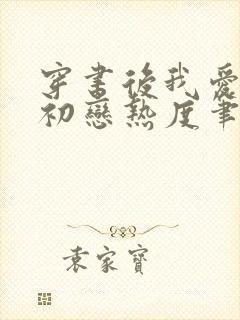 穿書後我愛
初戀熱度書
袁家寶